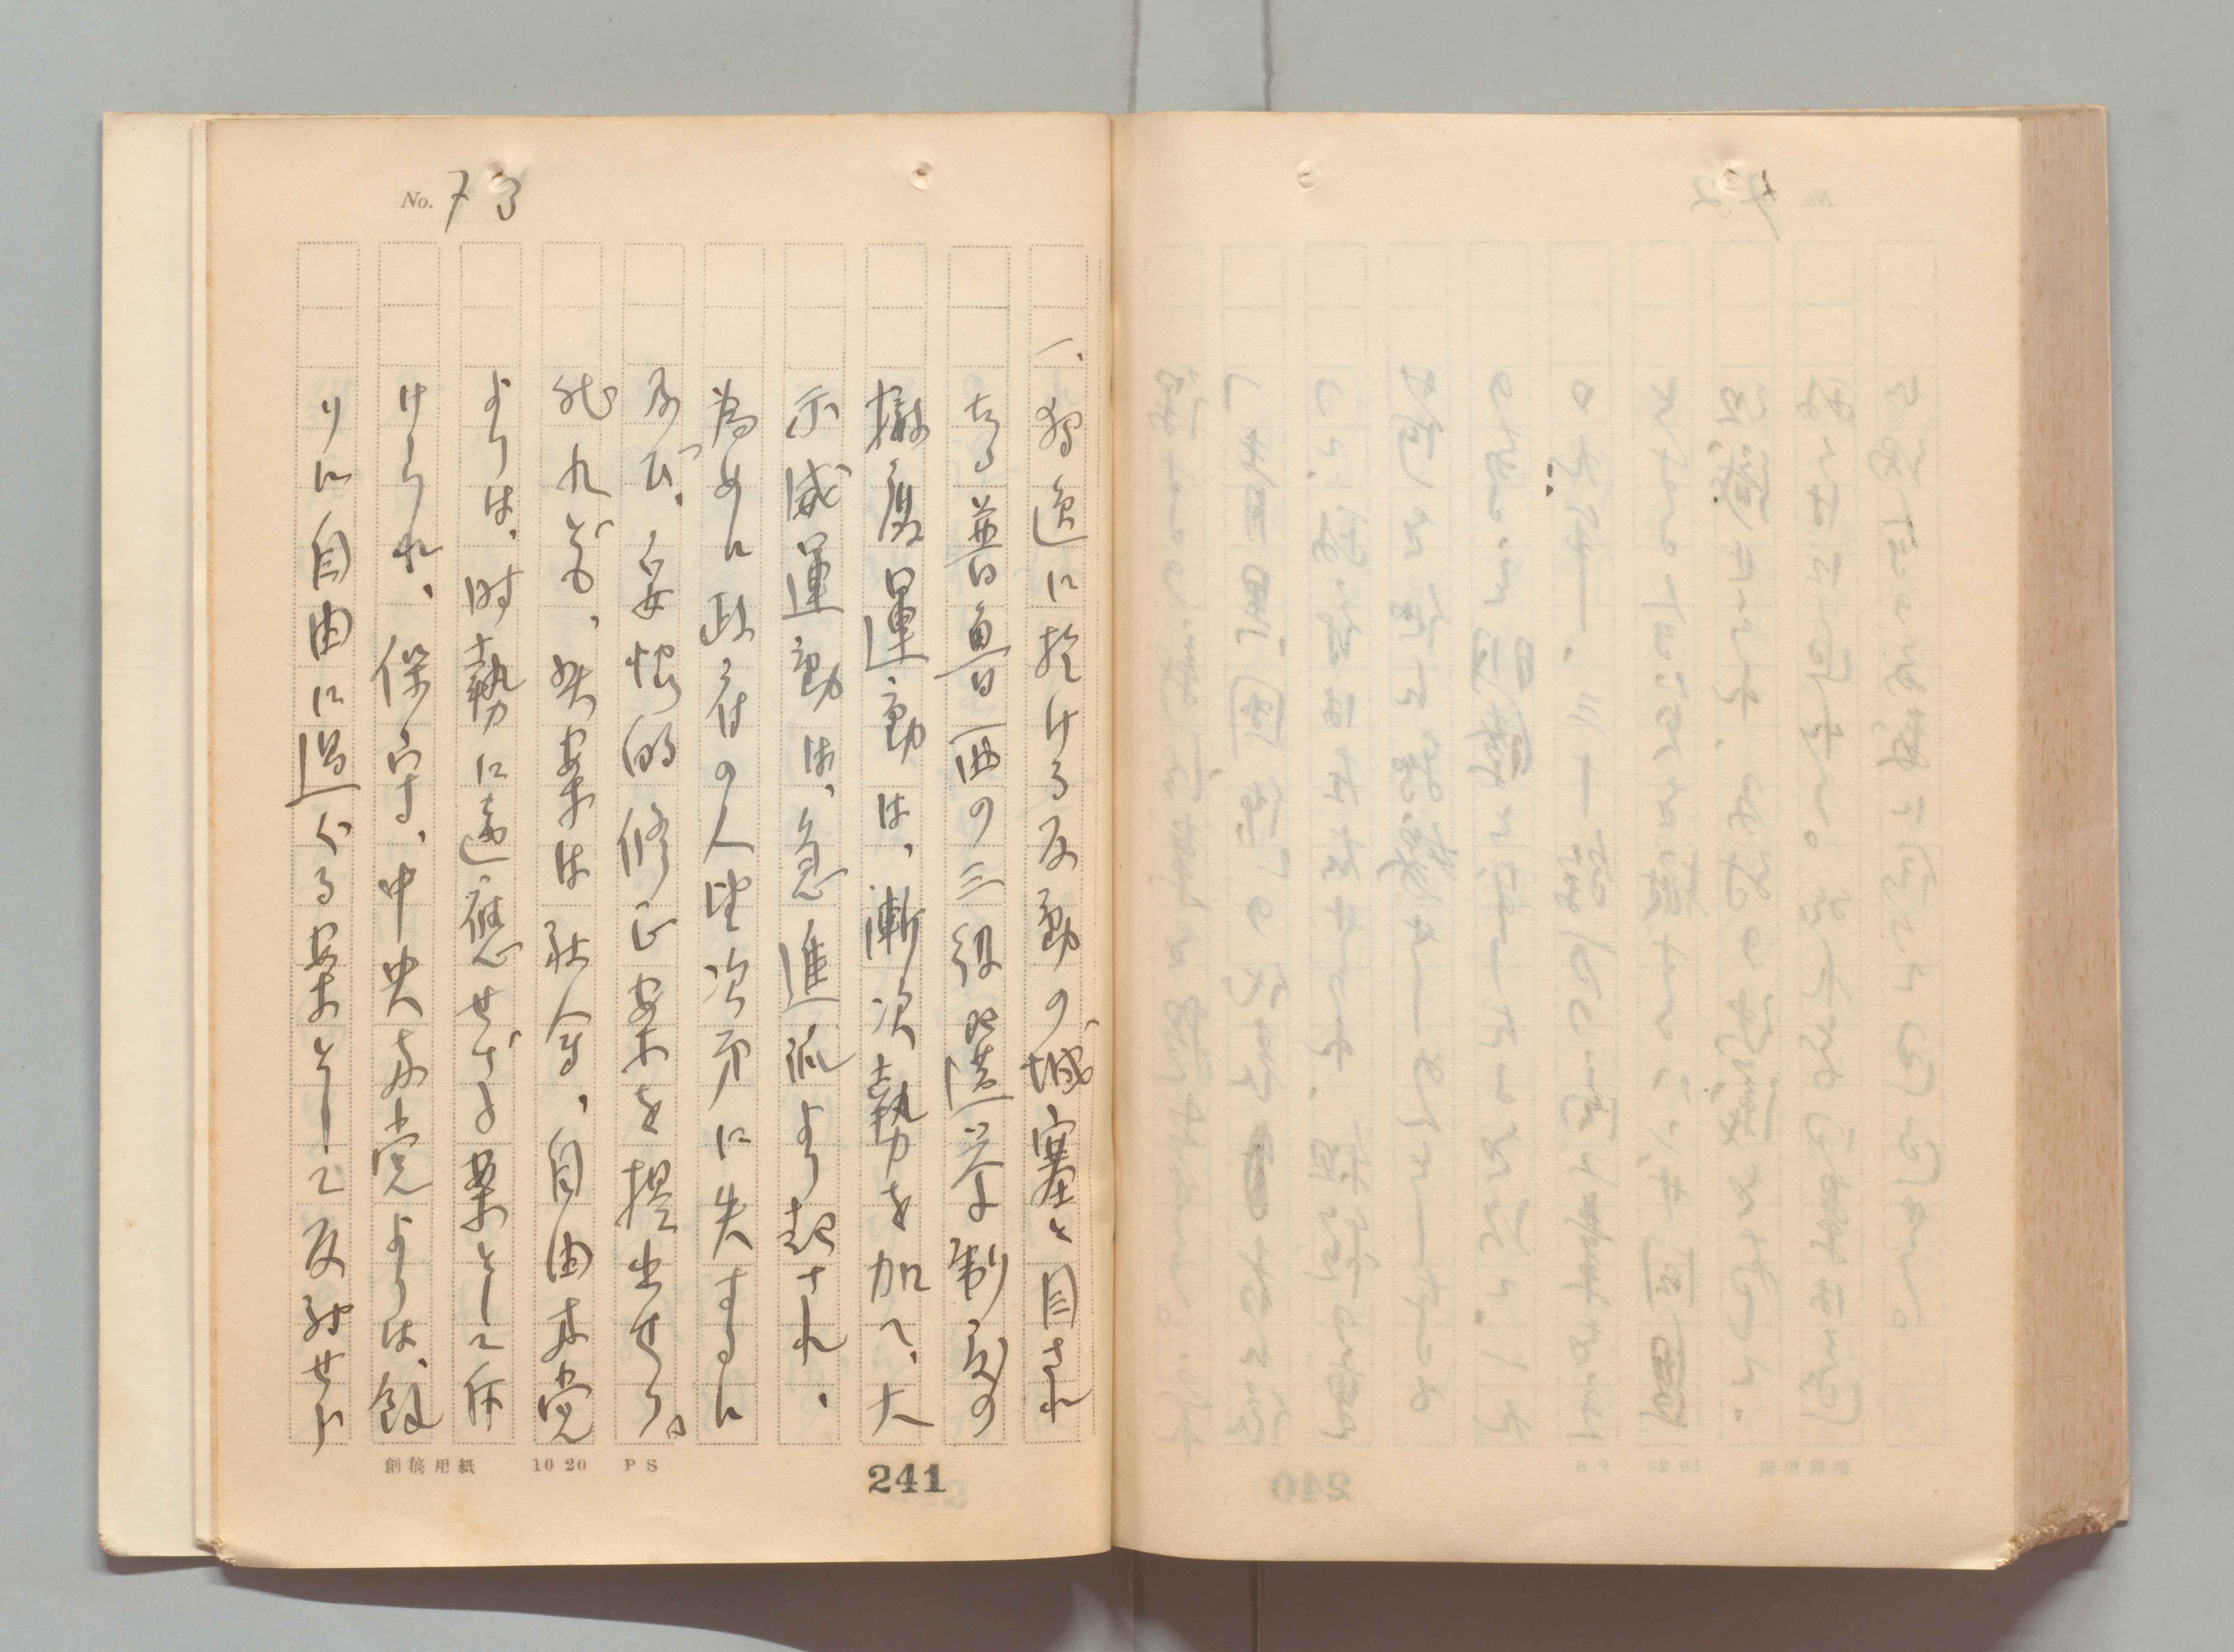 No. 73
一、独逸に於ける反動の城塞と目され
たる普魯西の三級選挙制度の
撤廃運動は、漸次勢を加へ、大
示威運動は、急進派より起され、
為めに政府の人望次第に失するに
及び、妥協的修正案を提出せり。
然れども、此案は社会、自由両党
よりは、時勢に適應せざる案として斥
けられ、保守、中央両党よりは、餘
りに自由に過ぐる案として反対せら
創稿用紙 10 20 PS
241